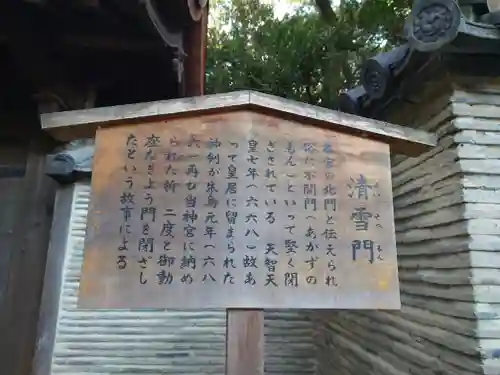 清雪門
せいせつもん
本宮の北門と伝えられ
俗に不開門(あかずの
もん)といって堅く閉
ざされている 天智天
皇七年(六六八)故あ
って皇居に留まられた
神剣が朱鳥元年(六八
六)再び当神宮に納め
られた折 二度と御動
座なきよう門を閉ざし
たという故事による